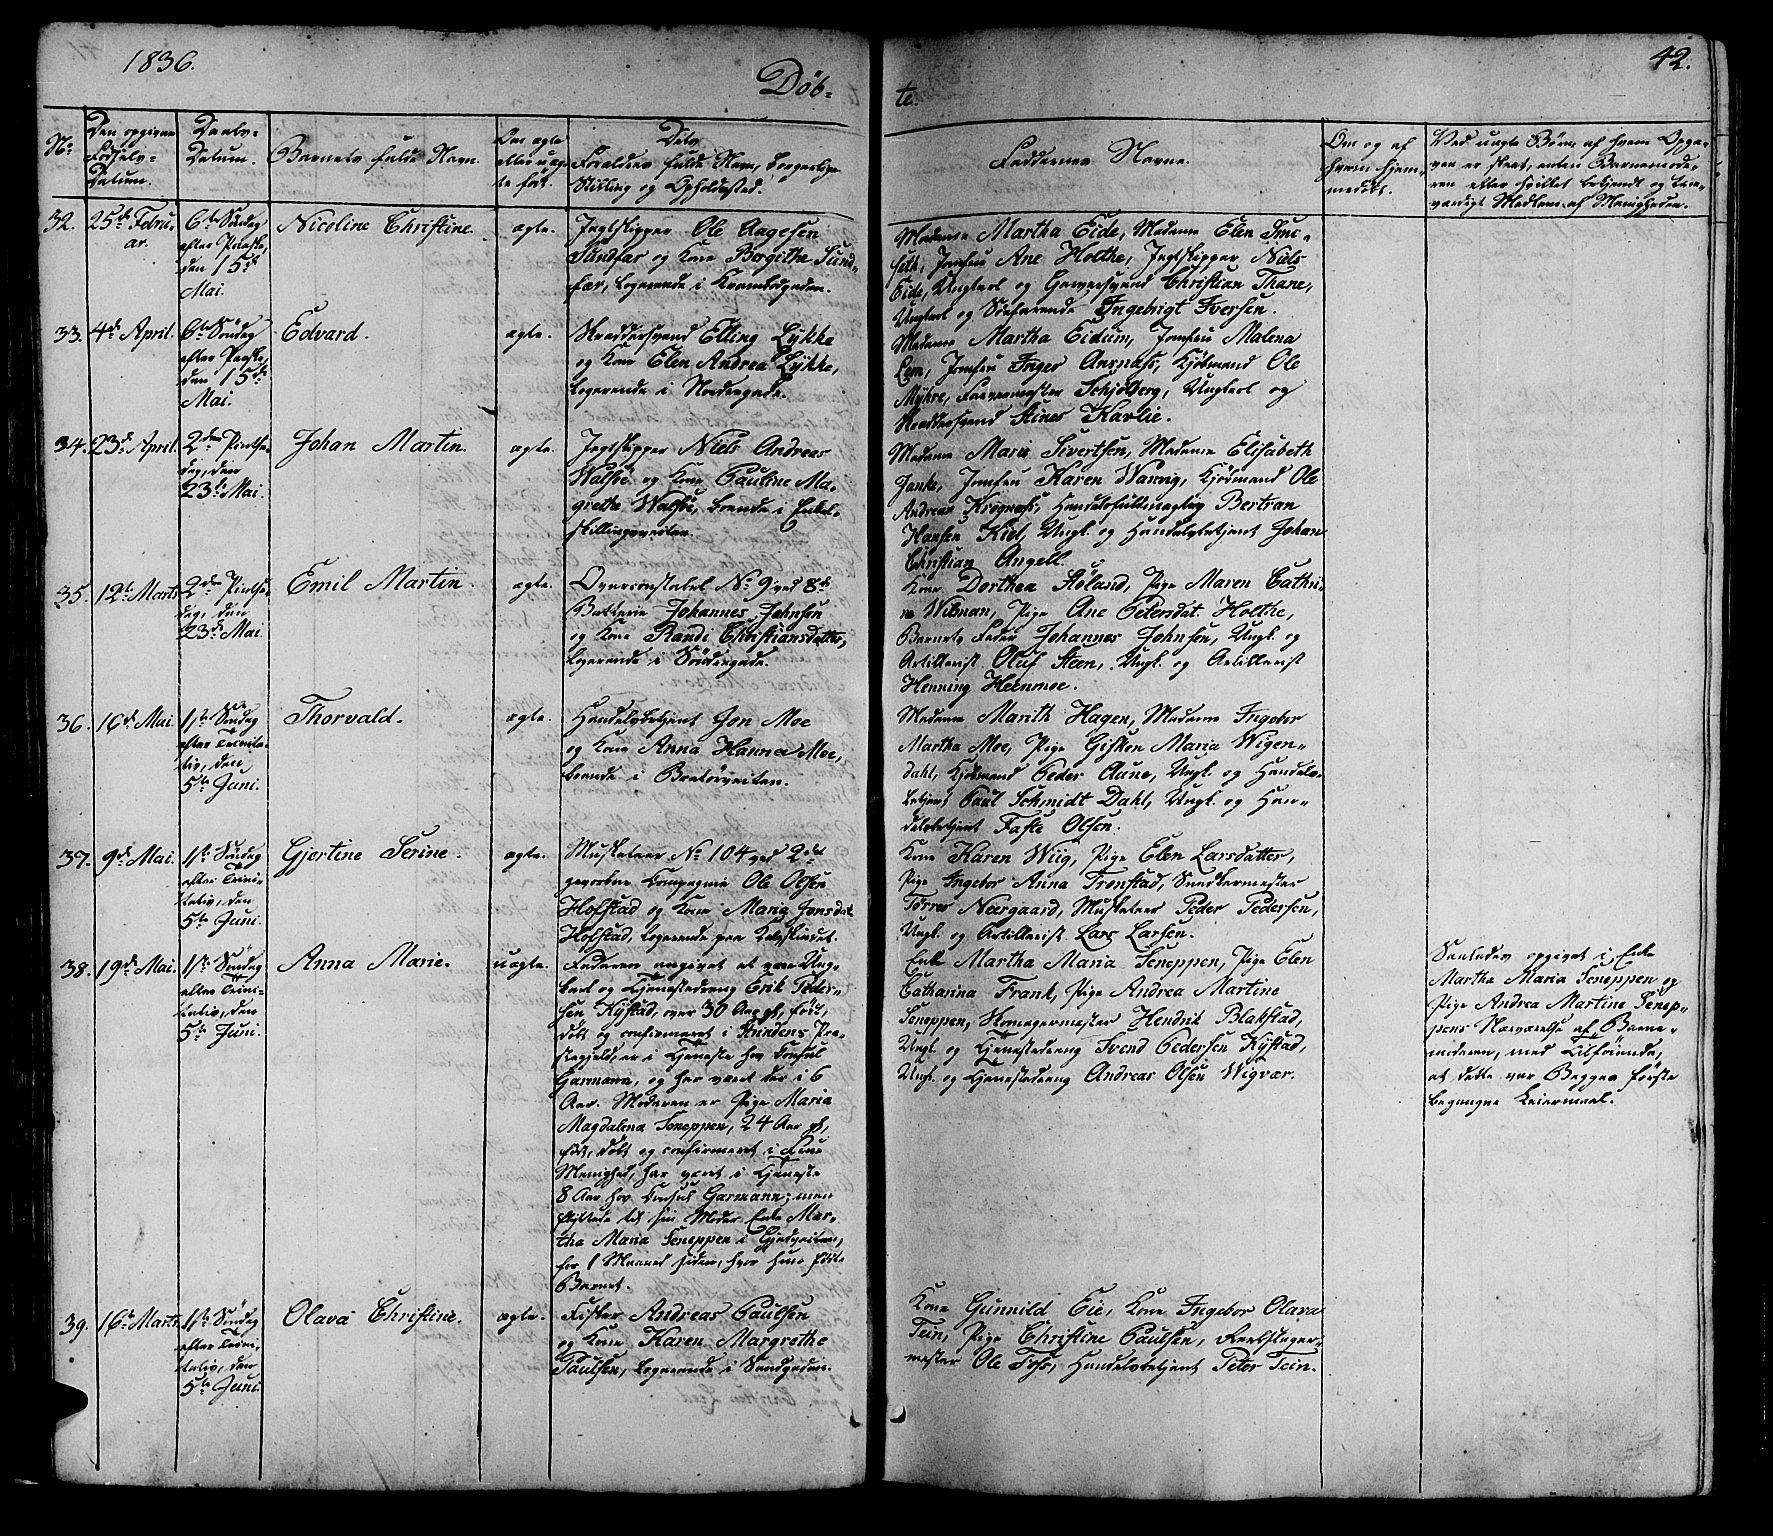 1836.
Döb-
te.
42.
No
Den opgivne
Födsels-
Datum.
Daabs-
Datum.
Barnets fulde Navn.
Om ægte
eller uæg-
te född.
Dets
Forældres fulde Navn, borgerlige
Stilling og Opholdssted.
Faddernes Navne.
Om og af
hvem hjem-
medöbt.
Ved uægte Börn, af hvem Opga-
ven er skeet, enten Barnemode-
ren eller hvilket bekjendt og tro-
værdigt Medlem af Menigheden.
32.
25de Febru-
ar.
6te Söndag
efter Paaske,
den 15de
Mai.
Nicoline Christine.
ægte.
Jægtskipper Ole Aagesen
Sundfær og Kone Borgithe Sund-
fær, logerende i Krambodgaden.
Madame Martha Eide, Madame Elen Smi-
seth, Jomfru Ane Holthe, Jægtskipper Niels
Eide, Ungkarl og Garversvend Christian Thane,
Ungkarl og Söefarende Ingebrigt Iversen.
33.
4de April.
6te Söndag
efter Paaske,
den 15de
Mai.
Edvard.
ægte.
Skræddersvend Elling Lykke
og Kone Elen Andrea Lykke,
logerende i Nordregade.
Madame Martha Eidum, Jomfru Malena
Lem, Jomfru Inger Aarnæss, Kjöbmand Ole
Myhre, Farvermester Schjölberg, Ungkarl og
Skræddersvend Stines Kavlie.
34.
23de April.
2den Pintse-
dag, den
23de Mai.
Johan Martin.
ægte.
Jægtskipper Niels Andreas
Walsöe og Kone Pauline Ma-
grethe Walsöe, boende i Enkel-
skillingsveiten.
Madame Maria Sivertsen, Madame Elisabeth
Janke, Jomfru Karen Wannig, Kjöbmand Ole
Andreas Krognæss, Handelsfuldmægtig Bertran
Hansen Kiel, Ungk. og Handelsbetjent Johan
Christian Angell.
35.
12te Marts
2den Pintse-
dag, den
23de Mai.
Emil Martin.
ægte.
Overconstabel No 9 ved 8de
Batterie Johannes Johnsen
og Kone Randi Christiansdatter,
logerende i Söndregade.
Kone Dorthea Höland, Pige Maren Cathri-
ne Wilman, Pige Ane Pedersdat. Holthe,
Barnets Fader Johannes Johnsen, Ungk. og
Artillerist Oluf Steen, Ungk. og Artillerist
Henning Heenmoe.
36.
16de Mai.
1ste Söndag
efter Trinita-
tis, den
5te Juni.
Thorvald.
ægte.
Handelsbetjent Jon Moe
og Kone Anna Hanna Moe,
boende i Bratörveiten.
Madame Marith Hagen, Madame Ingebor
Martha Moe, Pige Gisken Maria Wigen-
dahl, Kjöbmand Peder Aune, Ungk. og Handels-
betjent Paul Schmidt Dahl, Ungk. og Han-
delsbetjent Faste Olsen.
37.
9de Mai.
1ste Söndag
efter Trini-
tatis, den
5te Juni.
Gjertine Serine.
ægte.
Musketeer No 104 ved 2det
gevorbne Compagnie Ole Olsen
Hofstad og Kone Maria Jonsdat.
Hofstad, logerende paa Kalvskindet.
Kone Karen Wiig, Pige Elen Larsdatter,
Pige Ingebor Anna Trønstad, Snedkermester
Torres Neergaard, Musketeer Peder Pedersen,
Ungk. og Artillerist Lars Larsen.
38.
19de Mai.
1ste Söndag
efter Trini-
tatis, den
5te Juni.
Anna Marie.
uægte.
Faderen angivet at være Ung-
karl og Tjenestedreng Erik Peder-
sen Kystad, over 30 Aar gl., föd,
döbt og confirmeret i Strindens Præ-
stegjeld, er i Tjeneste hos Consul
Garmann, og har været der i 6
Aar. Moderen er Pige Maria
Magdalena Seneppen, 24 Aar gl.,
föd, döbt og confirmeret i Frue
Menighed, har været i Tjeneste
8 Aar hos Consul Garmann; men
flyttede til sin Moder Enke Mar-
tha Maria Seneppen i Gjedveiten,
for 1 Maaned siden, hvor hun födte
Barnet.
Enke Martha Maria Seneppen, Pige Elen
Catharina Frank, Pige Andrea Martine
Seneppen, Skomagermester Hendrik Blakstad,
Ungk. og Tjenestedreng Svend Pedersen Kystad,
Ungk. og Tjenestedreng Andreas Olsen Wigvær.
Saaledes opgivet i Enke
Martha Maria Seneppen og
Pige Andrea Martine Senep-
pens Nærværelse af Barne-
moderen, med Tilföiende,
at dette var Begges förste
begangne Leiermaal.
39.
16de Marts.
1ste Söndag
efter Trini-
tatis, den
5te Juni.
Olava Christine.
ægte.
Fisker Andreas Paulsen
og Kone Karen Margrethe
Paulsen, logerende i Sandgaden.
Kone Gunnild Eie, Kone Ingebor Olava
Tein, Pige Christine Paulsen, Reebslager-
mester Ole Foss, Handelsbetjent Peter Tein.